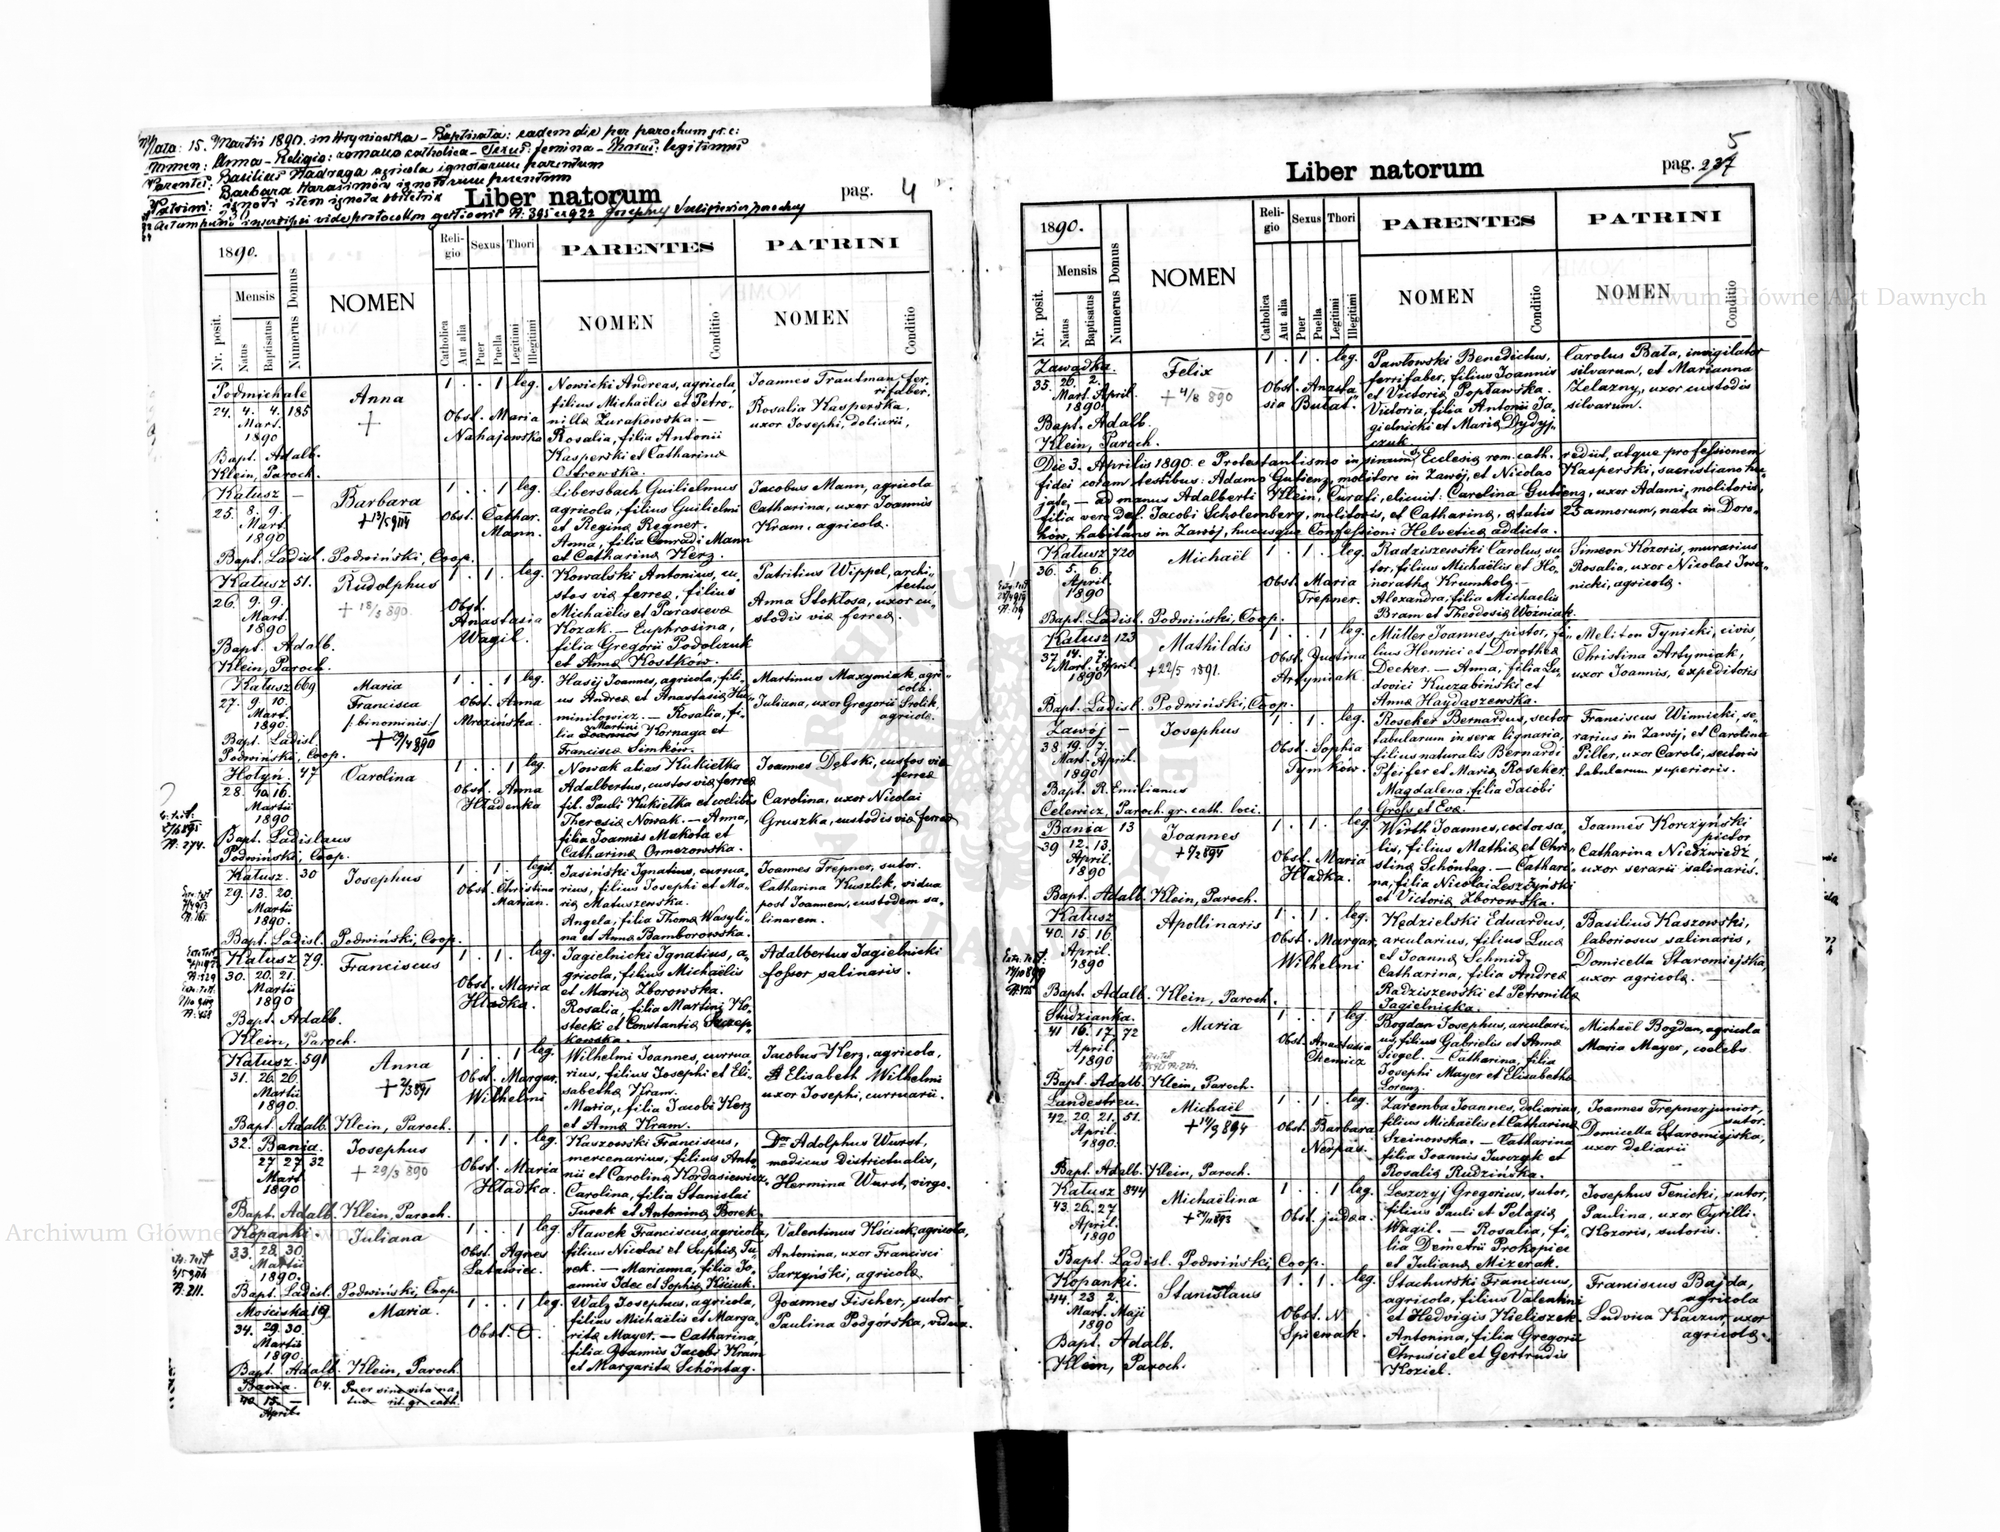 Nata: 15. Martii 1890. in Hryniawka - Baptisata: eadem die per parochum gr. c:
Nomen: Anna - Religio: romano catholica - Sexus: femina - Thorus: legitimus
Parentes: Basilius Hadraga agricola ignotorum parentum
Barbara Harasimów ignotorum parentum
Patrini: ignoti item ignota obstetrix
Actum hunc inscripsi vide protocollon gestionis N: 395 ex 922 Josephus parochus
Liber natorum
pag. 4
1890.
Religio
Sexus
Thori
PARENTES
PATRINI
Nr. posit.
Mensis
Natus
Baptisatus
Numerus Domus
NOMEN
Catholica
Aut alia
Puer
Puella
Legitimi
Illegitimi
NOMEN
Conditio
NOMEN
Conditio
Podmichale
24. 4. 4. 185
Mart.
1890
Bapt. Adalb.
Klein, Paroch.
Anna
+
1 . . 1 leg.
Obst. Maria
Nahajowska
Nowicki Andreas, agricola,
filius Michaëlis et Petro-
nillæ Zurakowska. —
Rosalia, filia Antonii
Kasperski et Catharinæ
Ostrowska.
Joannes Trautman, fer-
rifaber.
Rosalia Kasperska,
uxor Josephi, doliarii.
Kałusz —
25. 8. 9.
Mart.
1890
Bapt. Ladisl. Podwiński, Coop.
Barbara
+ 13/5 904
1 . . 1 leg.
Obst. Cathar.
Mann.
Libersbach Guilielmus
agricola, filius Guilielmi
et Reginæ Regner.
Anna, filia Conradi Mann
et Catharinæ Herz.
Jacobus Mann, agricola
Catharina, uxor Joannis
Kram, agricolæ.
Kałusz 51.
26. 9. 9.
Mart.
1890
Bapt. Adalb.
Klein, Paroch.
Rudolphus
+ 18/3 890.
1 . 1 . leg.
Obst.
Anastasia
Wagil.
Kowalski Antonius, cu-
stos viæ ferreæ, filius
Michaëlis et Parascevæ
Kozak. — Euphrosina,
filia Gregorii Podolczuk
et Annæ Kostków.
Patritius Wippel, archi-
tectus
Anna Stokłosa, uxor cu-
stodis viæ ferreæ.
Kałusz 669
27. 9. 10.
Mart.
1890.
Bapt. Ladisl.
Podwiński, Coop.
Maria
Francisca
/: binominis :/
+ 29/4 890
1 . . 1 leg.
Obst. Anna
Mrozińska.
Hasij Joannes, agricola, fili-
us Andreæ et Anastasiæ Hu-
minilowicz. — Rosalia, fi-
Martini
lia Joannis Kornaga et
Franciscæ Simków.
Martinus Maxymiak, agri-
cola.
Juliana, uxor Gregorii Srolik,
agricolæ.
Hołyń. 47
28. 10. 16.
Martii
1890
Bapt. Ladislaus
Podwiński, Coop.
Carolina
1 . . 1 leg.
Obst. Anna
Hładenka
Nowak alias Kukiełka
Adalbertus, custos viæ ferreæ
fil. Pauli Kukiełka et cœlibis
Theresiæ Nowak. — Anna,
filia Joannis Makota et
Catharinæ Ormezowska.
Joannes Dębski, custos viæ
ferreæ
Carolina, uxor Nicolai
Gruszka, custodis viæ ferreæ
N: 274.
Kałusz. 30
29. 13. 20.
Martii
1890.
Bapt. Ladisl. Podwiński, Coop.
Josephus
1 . 1 . legit.
Obst. Christina
Marian.
Jasiński Ignatius, currua-
rius, filius Josephi et Ma-
riæ Matuszewska.
Angela, filia Thomæ Wasyli-
na et Annæ Bamborowska.
Joannes Trepner, sutor.
Catharina Kuszlik, vidua
post Joannem, custodem sa-
linarem.
Kałusz 79.
30. 20. 21.
Martii
1890
Bapt. Adalb.
Klein, Paroch.
Franciscus
1 . 1 . leg.
Obst. Maria
Hładka.
Jagielnicki Ignatius, a-
gricola, filius Michaëlis
et Mariæ Zborowska.
Rosalia, filia Martini Ko-
stecki et Constantiæ Szczep-
kowska.
Adalbertus Jagielnicki
fossor salinaris.
Kałusz. 591
31. 26. 26.
Martii
1890.
Bapt. Adalb. Klein, Paroch.
Anna
+ 2/3 891
1 . . 1 leg.
Obst. Margar.
Wilhelmi
Wilhelmi Joannes, currua-
rius, filius Josephi et Eli-
sabethæ Kram.
Maria, filia Jacobi Herz
et Annæ Kram.
Jacobus Herz, agricola,
Elisabeth Wilhelmi
uxor Josephi, curruarii.
32. Bania.
27 27 32
Mart
1890
Bapt. Adalb. Klein, Paroch.
Josephus
+ 29/3 890
1 . 1 . leg.
Obst. Maria
Hładka.
Kaszowski Franciscus,
mercenarius, filius Anto-
nii et Carolinæ Kordasiewicz,
Carolina, filia Stanislai
Turek et Antoninæ Borek.
Dor Adolphus Wurst,
medicus Districtualis,
Hermina Wurst, virgo.
Kopanki.
33. 28. 30.
Martii
1890.
Bapt. Ladisl. Podwiński, Coop.
Juliana
1 . . 1 leg.
Obst. Agnes
Latawiec.
Sławek Franciscus, agricola,
filius Nicolai et Sophiæ Tu-
rek. — Marianna, filia Jo-
annis Idec et Sophiæ Kściuk.
Valentinus Kściuk, agricola,
Antonina, uxor Francisci
Sarzyński, agricolæ.
N: 211.
Mościska 19
34. 29. 30.
Martii
1890.
Bapt. Adalb. Klein, Paroch.
Maria.
1 . . 1 leg.
Obst. O.
Walz Josephus, agricola,
filius Michaëlis et Marga-
ritæ Mayer. — Catharina,
filia Joannis Jacobi Kram
et Margaritæ Schöntag.
Joannes Fischer, sutor
Paulina Podgórska, vidua.
Bania. 64.
40 15. —
April.
Puer sine vita na-
tus rit. gr. cath.
Liber natorum
pag. 237
5
1890.
Religio
Sexus
Thori
PARENTES
PATRINI
Nr. posit.
Mensis
Natus
Baptisatus
Numerus Domus
NOMEN
Catholica
Aut alia
Puer
Puella
Legitimi
Illegitimi
NOMEN
Conditio
NOMEN
Conditio
Zawadka.
35. 26. 2.
Mart. April.
1890.
Bapt. Adalb.
Klein, Paroch.
Felix
+ 4/8 890
1 . 1 . leg.
Obst. Anasta-
sia Bułat.
Pawłowski Benedictus,
ferrifaber, filius Joannis
et Victoriæ Popławska.
Victoria, filia Antonii Ja-
gielnicki et Mariæ Drydyj-
czuk
Carolus Bała, invigilator
silvarum, et Marianna
Żelazny, uxor custodis
silvarum.
Die 3. Aprilis 1890. e Protestantismo in sinum Ecclesiæ rom. cath. rediit, atque professionem
fidei coram testibus: Adamo Gutienz, molitore in Zawój, et Nicolao Kasperski, sacristiano hu-
jate, — ad manus Adalberti Klein, Curati, elicuit: Carolina Gutienz, uxor Adami, molitoris,
filia vero Def. Jacobi Scholemberg, molitoris, et Catharinæ, ætatis 25 annorum, nata in Doro-
hów, habitans in Zawój, hucusque Confessioni Helveticæ addicta.
Kałusz 720
36. 5. 6.
April.
1890
Bapt. Ladisl. Podwiński, Coop.
Michaël
1 . 1 . leg.
Obst. Maria
Trepner.
Radziszewski Carolus, su-
tor, filius Michaëlis et Ho-
norathæ Krumholz. —
Alexandra, filia Michaelis
Bram et Theodosiæ Woźniak.
Simeon Kozoris, murarius
Rosalia, uxor Nicolai Iwa-
nicki, agricolæ.
Kałusz 123
37. 14. 7.
Mart. April.
1890
Bapt. Ladisl. Podwiński, Coop.
Mathildis
+ 22/5 1891.
1 . . 1 leg.
Obst. Justina
Artymiak.
Müller Joannes, pistor, fi-
lius Henrici et Dorotheæ
Decker. — Anna, filia Lu-
dovici Kuczabiński et
Annæ Haydaszewska.
Meliton Tynicki, civis,
Christina Artymiak,
uxor Joannis, expeditoris
Zawój —
38. 19. 7.
Mart. April.
1890
Bapt. R. Emilianus
Celewicz, Paroch. gr. cath. loci.
Josephus
1 . 1 . leg.
Obst. Sophia
Tymków.
Roseker Bernardus, sector
tabularum in sera lignaria,
filius naturalis Bernardi
Pfeifer et Mariæ Roseker.
Magdalena, filia Jacobi
Grofs et Evæ
Franciscus Winnicki, se-
rarius in Zawój, et Carolina
Piller, uxor Caroli, sectoris
tabularum superioris.
Bania 13
39 12. 13.
April.
1890
Bapt. Adalb. Klein, Paroch.
Joannes
+ 4/2 894
1 . 1 . leg.
Obst. Maria
Hładka.
Wirth Joannes, coctor sa-
lis, filius Mathiæ et Chri-
stinæ Schöntag. — Cathari-
na, filia Nicolai Leszczyński
et Victoriæ Zborowska.
Joannes Korczyński
pictor
Catharina Niedźwiedź,
uxor serarii salinaris.
Kałusz
40. 15 16.
April.
1890
Bapt. Adalb. Klein, Paroch.
Apollinaris
1 . 1 . leg.
Obst. Margar.
Wilhelmi
Hędzielski Eduardus,
arcularius, filius Lucæ
et Joannæ Schmidz
Catharina, filia Andreæ
Radziszewski et Petronillæ
Jagielnicka.
Basilius Kaszowski,
laboriosus salinaris,
Domicella Staromiejska,
uxor agricolæ.
Studzianka.
41 16. 17. 72
April.
1890
Bapt. Adalb. Klein, Paroch.
Maria
1 . . 1 leg.
Obst. Anastasia
Chemicz
Bogdan Josephus, arculari-
us, filius Gabrielis et Annæ
Siegel. — Catharina, filia
Josephi Mayer et Elisabethæ
Lorenz.
Michaël Bogdan, agricola
Maria Mayer, cœlebs.
Landestreu.
42. 20. 21. 51.
April.
1890.
Bapt. Adalb. Klein, Paroch.
Michaël
+ 14/9 894
1 . 1 . leg.
Obst. Barbara
Nerpas.
Zaremba Joannes, doliarius,
filius Michaëlis et Catharinæ
Szeinowska. — Catharina
filia Joannis Jurczyk et
Rosaliæ Rudzińska.
Joannes Trepner junior,
sutor.
Domicella Staromiejska,
uxor doliarii
Kałusz 844
43. 26. 27
April.
1890
Bapt. Ladisl. Podwiński, Coop.
Michaëlina
+ 24/11 893
1 . . 1 leg.
Obst. judæa.
Leszczyj Gregorius, sutor,
filius Pauli et Pelagiæ
Wagil. — Rosalia, fi-
lia Demetrii Prokopiec
et Julianæ Mizerak.
Josephus Tenicki, sutor,
Paulina, uxor Cyrilli.
Kozoris, sutoris.
Kopanki.
44. 23 2.
Mart. Maji
1890
Bapt. Adalb.
Klein, Paroch.
Stanislaus
1 . 1 . leg.
Obst. N.
Śpiewak.
Stachurski Franciscus,
agricola, filius Valentini
et Hedvigis Kieliszek.
Antonina, filia Gregorii
Chruściel et Gertrudis
Kozieł.
Franciscus Bajda,
agricola
Ludvica Kaczur, uxor
agricolæ.
Archiwum Główne Akt Dawnych
Archiwum Główne Akt Dawnych